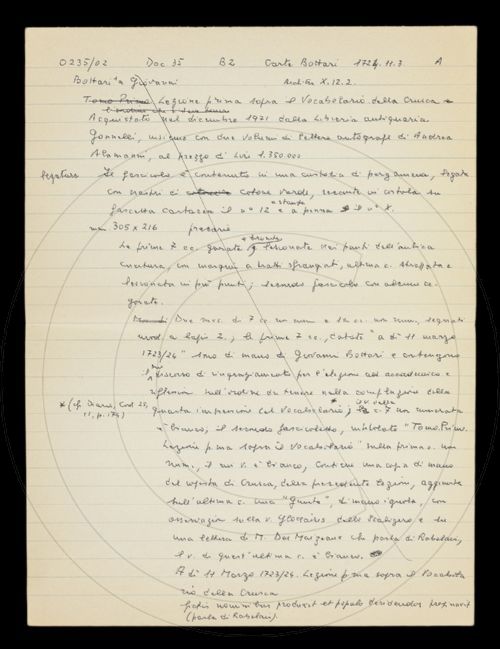 0235/02 Doc 35 B2 Carte Bottari 1724.11.3. A
Bottari Giovanni Arch. X.12.2.
Tomo Primo Lezione prima sopra il Vocabolario della Crusca
Acquistato nel dicembre 1971 dalla Libreria antiquaria
Gonnelli, insieme con due volumi di lettere autografe di Andrea
Alamanni, al prezzo di lire 1.350.000
legatura Il fascicolo è contenuto in una custodia di pergamena, legata
con nastri di cotone verde, recante in costola su
fascetta cartacea il n° 12 a stampa e a penna il n° X.
mm 305 x 216
Le prime 7 cc. forate e brunite lesionate nei punti dell'antica
cucitura, con margini a tratti sfrangiati, ultima c. strappata e
lesionata in più punti; secondo fascicolo con alcune c.
forate.
Due fasc. di 7 cc. non num. e 12 cc. non num., segnati
a lapis 2.; le prime 7 cc., datate "a dì 11 marzo
1723/24" sono di mano di Giovanni Bottari e contengono
il suo discorso di ringraziamento per l'elezione ad accademico e
riflessioni sull'ordine da tenere nella compilazione della
* (cf. Diario, Cod. 25, quarta impressione del Vocabolario*; il v. della c. 7 non numerata
11, p. 175) è bianco, il secondo fascicoletto, intitolato "Tomo Primo.
Lezione prima sopra il Vocabolario" sulla prima c. non
num., il cui v. è bianco, contiene una copia di mano
del copista di Crusca, della precedente lezione, aggiunta
sull'ultima c. una "Giunta", di mano ignota, con
osservazioni sulla v. Glossaires dello Scaligero e su
una lettera di M. Des Marzeaux che parla di Rabelais,
il v. di quest'ultima c. è bianco.
A dì 11 Marzo 1723/24. Lezione prima sopra il Vocabola
rio della Crusca
fictis nominibus produxit et populo deridendos propinavit
(parla di Rabelais).